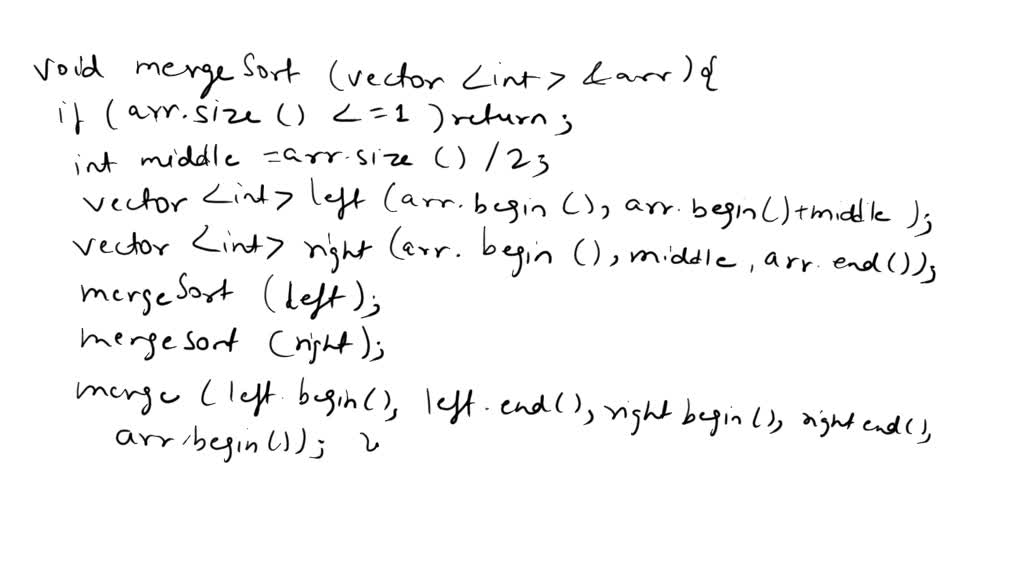 void mergeSort (vector <int> &arr){
if (arr.size () <=1 ) return;
int middle =arr.size () /2;
vector <int> left (arr.begin (), arr.begin()+middle );
vector <int> right (arr. begin (), middle, arr.end());
mergeSort (left);
mergesort (right);
merge (left.begin(), left.end(), right begin(), right end(),
arr.begin()); }